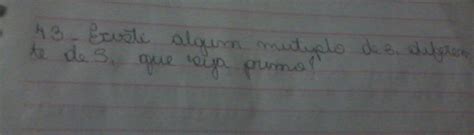 43 - Existe algum mutiplo de 3, diferen
te de 3, que seja primo?